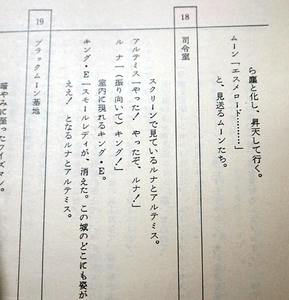 ら塵と化し、昇天して行く。
ムーン「エスメロード………」
と、見送るムーンたち。
18 司令室
スクリーンで見ているルナとアルテミス。
アルテミス「やった! やったぞ、ルナ!」
ルナ「(振り向いて)キング!」
室内に現れるキング・E。
キング・E「スモールレディが、消えた。この城のどこにも姿が
ええ! となるルナとアルテミス。
19 ブラックムーン基地